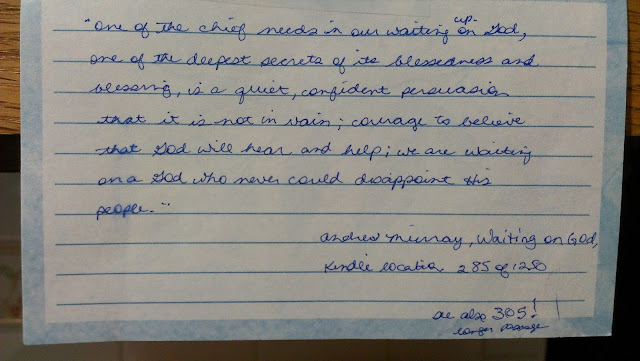 "One of the chief needs in our waiting upon God,
one of the deepest secrets of its blessedness and
blessing, is a quiet, confident persuasion
that it is not in vain; courage to believe
that God will hear and help; we are waiting
on a God who never could disappoint His
people."
Andrew Murray, Waiting on God,
Kindle location 285 of 1250
see also 305!
longer passage